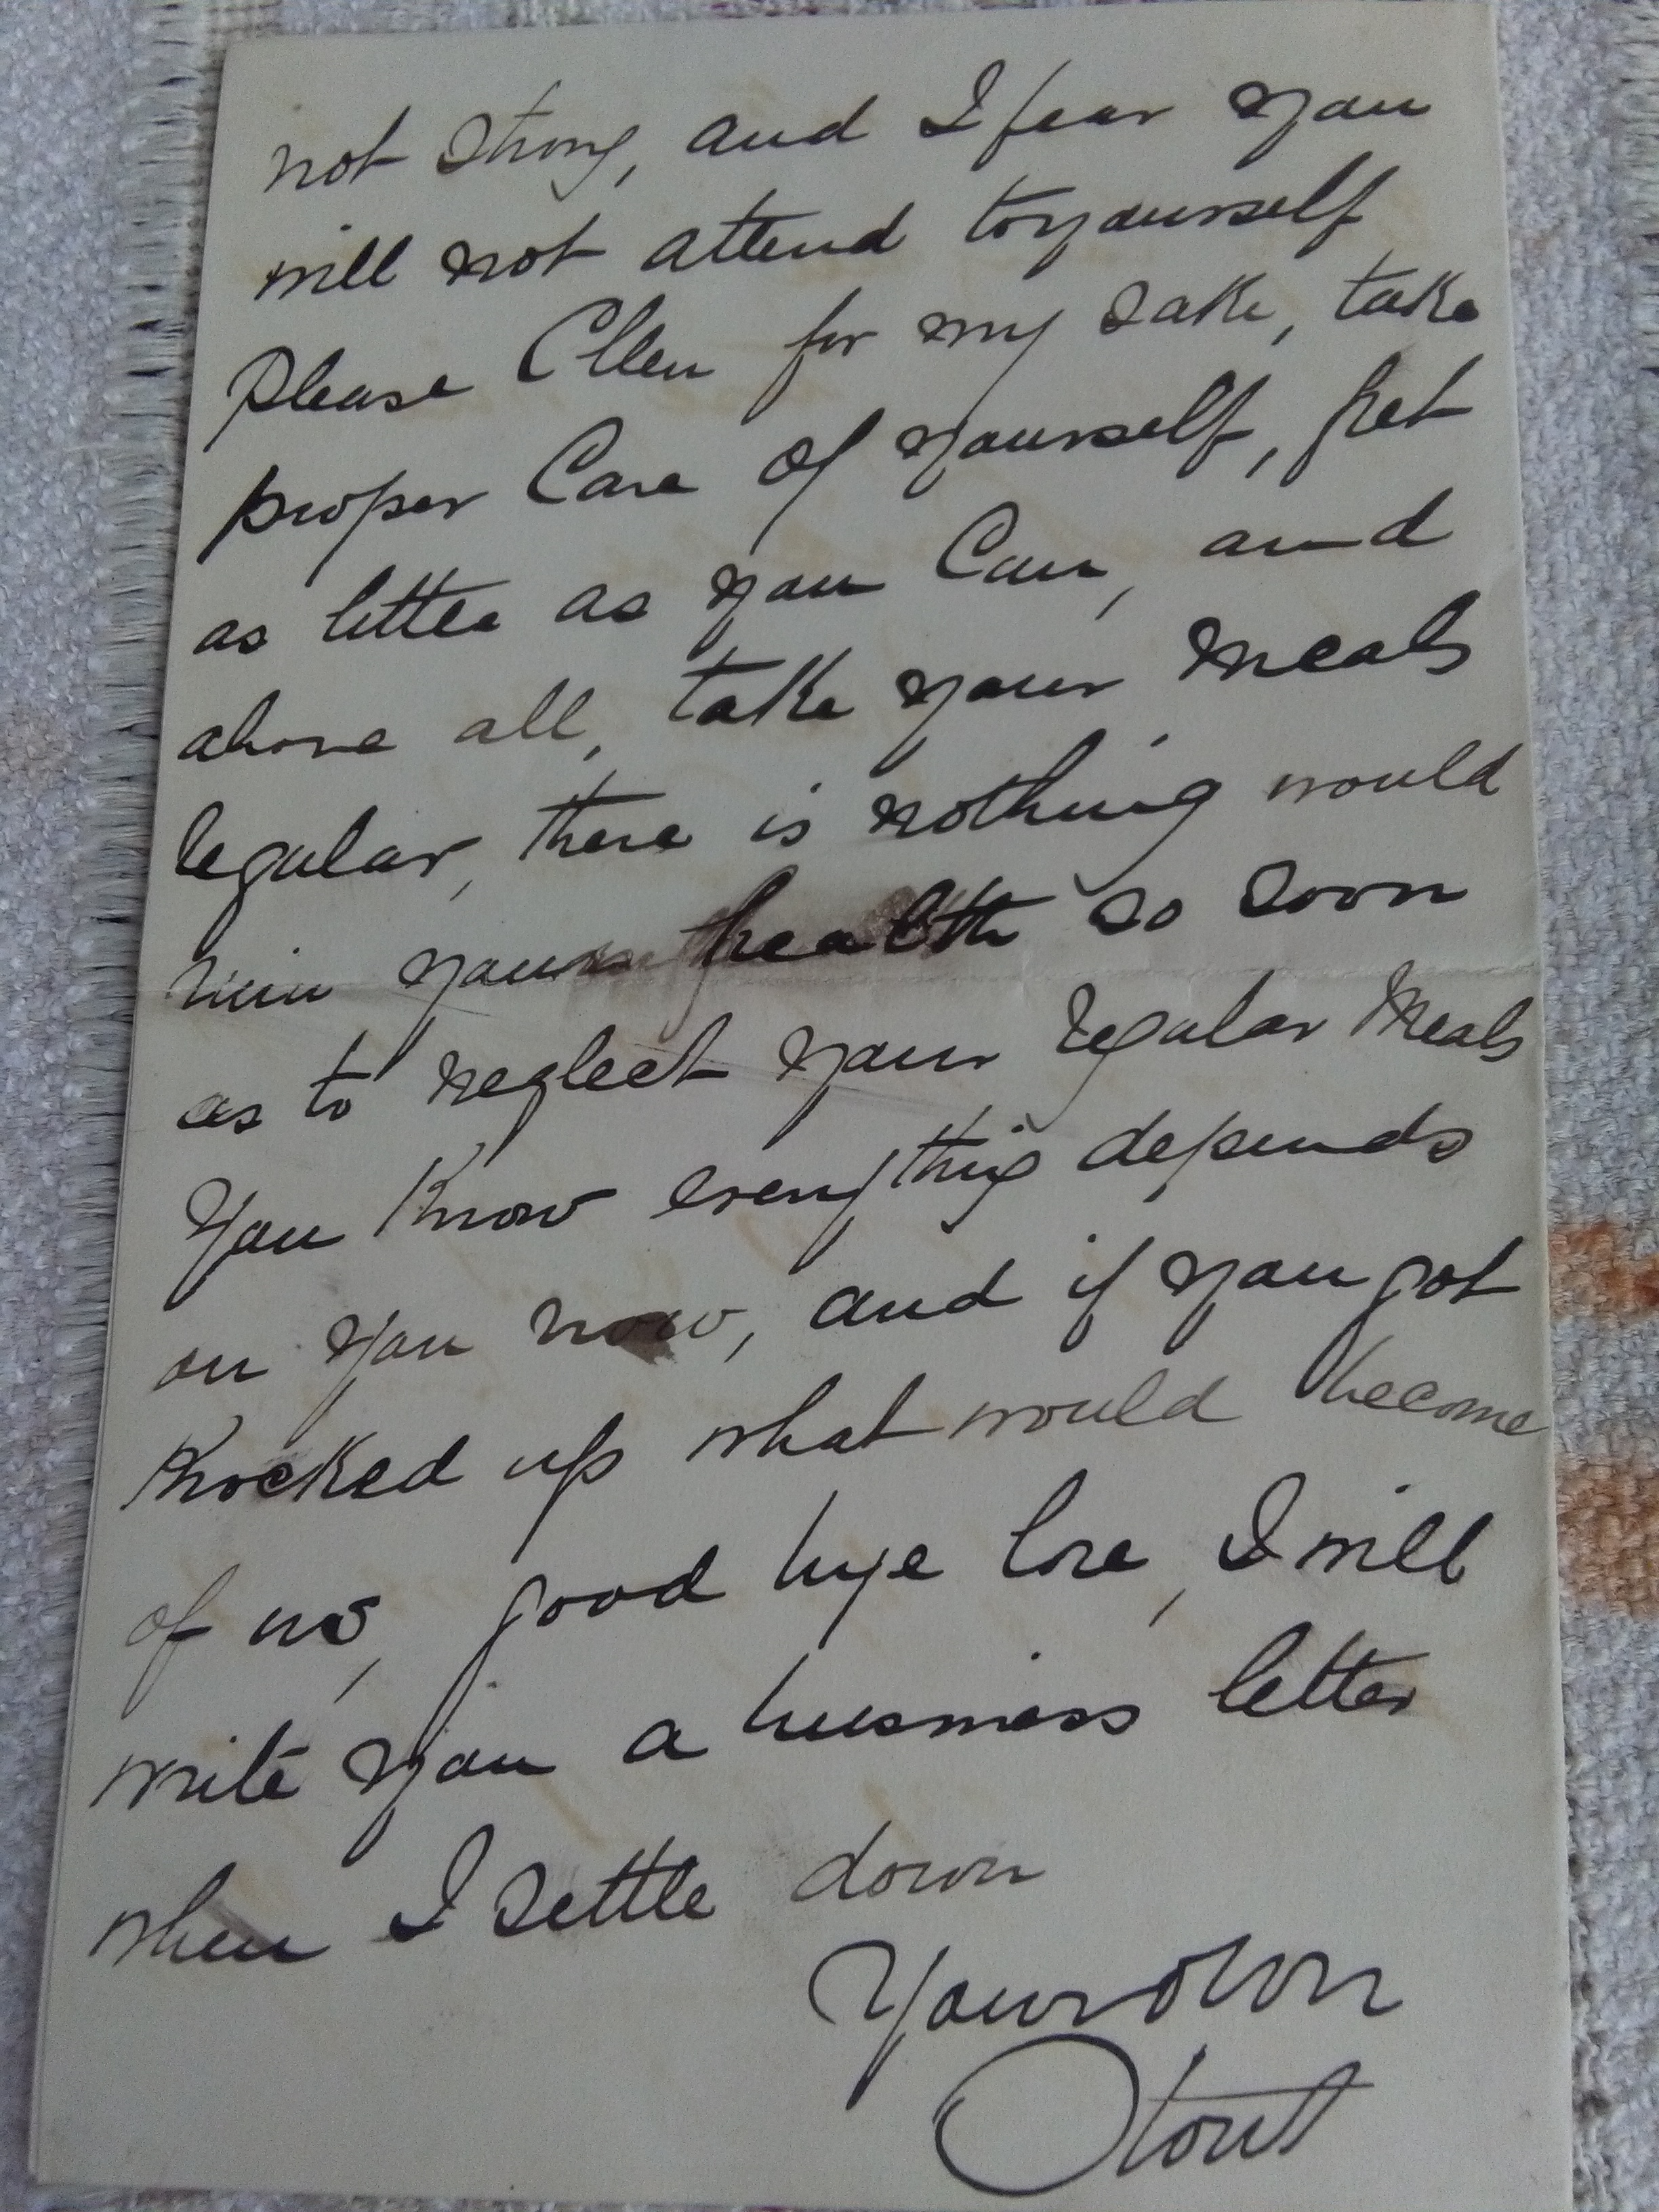 not strong, and I fear you
will not attend to yourself
Please Ellen for my sake, take
proper Care of yourself, fret
as little as you Can, and
above all, take your meals
regular, there is nothing would
ruin your health so soon
as to neglect your regular Meals
You Know everything depends
on you now, and if you got
Knocked up what would become
of us, good bye love, I will
write you a business letter
when I settle down
Your own
Stout